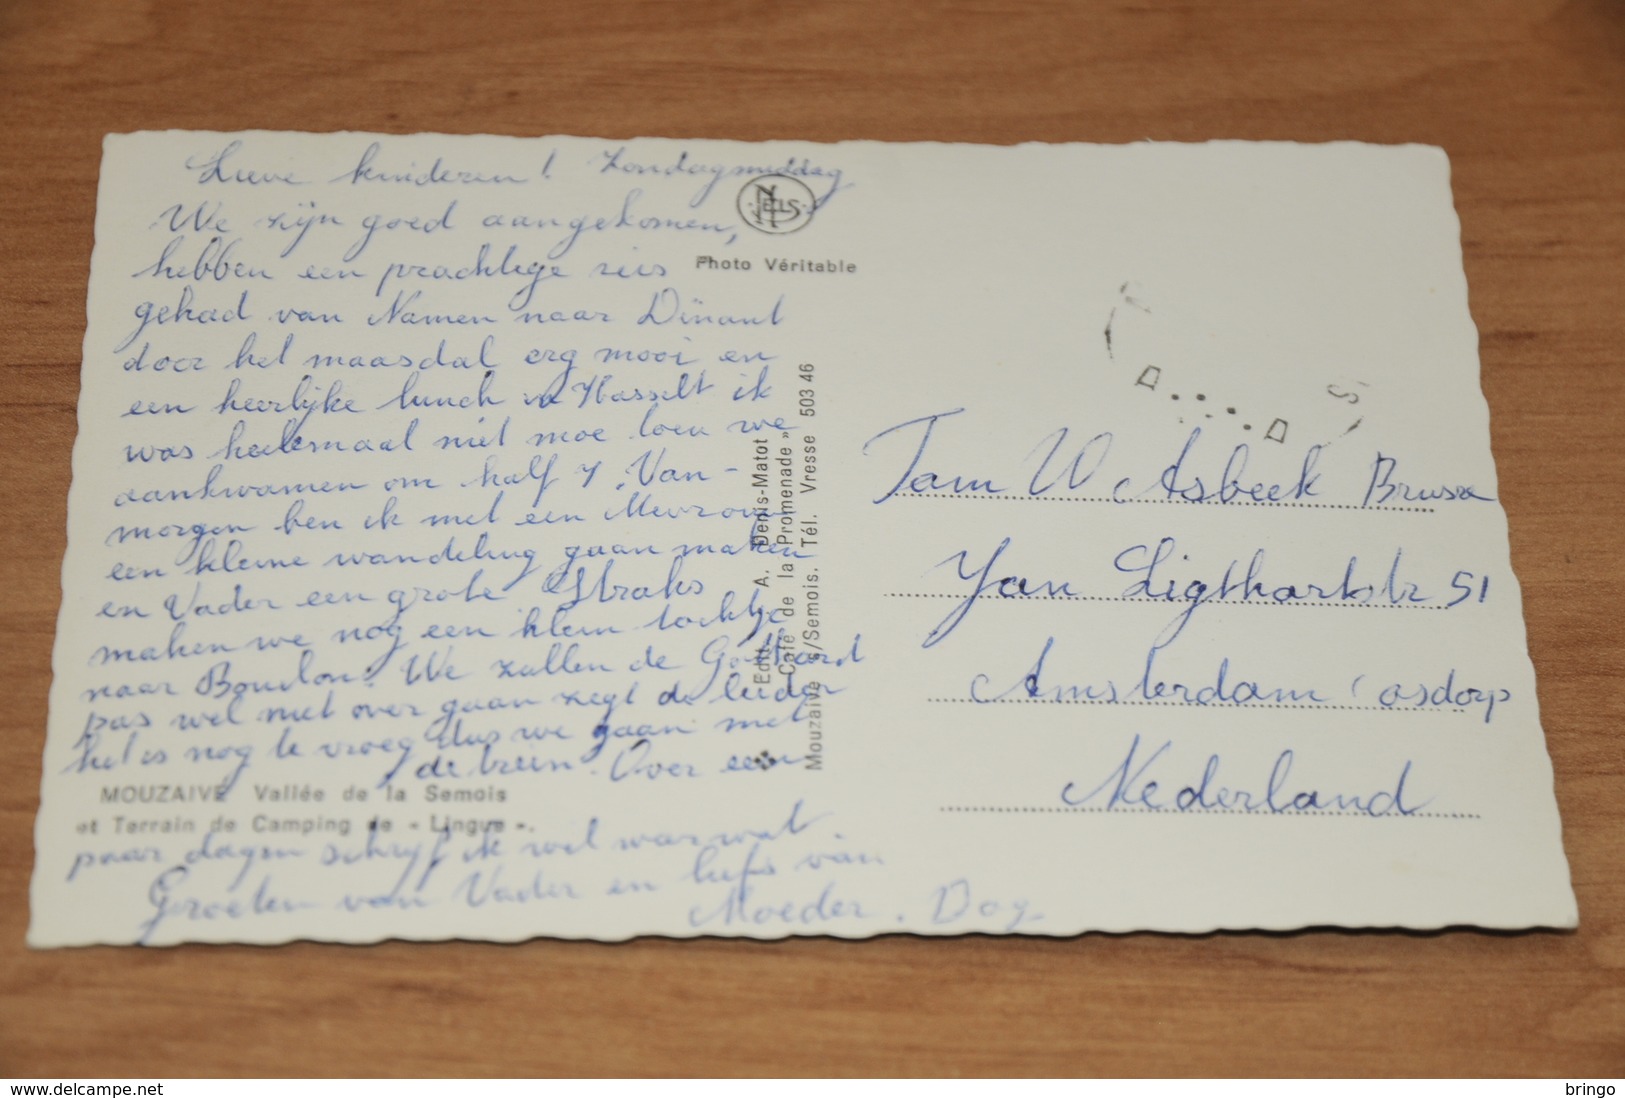 Lieve kinderen! Zondagmiddag
We zijn goed aangekomen,
hebben een prachtige reis
gehad van Namen naar Dinant
door het maasdal erg mooi en
een heerlijke lunch in Hasselt ik
was helemaal niet moe toen we
aankwamen om half 7. Van-
morgen ben ik met een Mevrouw
een kleine wandeling gaan maken
en Vader een grote. Straks
maken we nog een klein tochtje
naar Bouillon. We zullen de Gotthard
pas wel niet over gaan zegt de leider
het is nog te vroeg dus we gaan met
de trein. Over een
paar dagen schrijf ik wel weer wat.
Groeten van Vader en liefs van
Moeder. Dag
NELS
Photo Véritable
MOUZAIVE Vallée de la Semois
et Terrain de Camping de « Lingue ».
Edit. A. Denis-Matot
Café de la « Promenade »
Mouzaive s/Semois. Tél. Vresse 503 46
Fam W Asbeek Brusse
Jan Ligthartstr 51
Amsterdam (osdorp
Nederland
delcampe.net
bringo